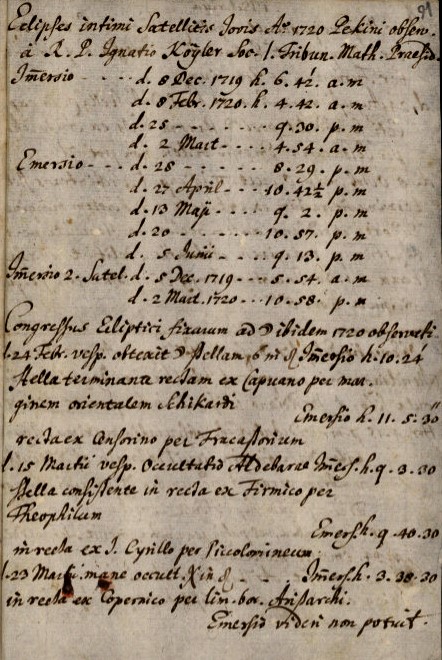 91
Eclipses intimi Satellitis Jovis Aº 1720 Pekini observ.
à R. P. Ignatio Kögler Soc. J. Tribun. Math. Præsid.
Immersio - - - - d. 8 Dec. 1719 h. 6. 41'. a. m
d. 8 Febr. 1720. h. 4. 42. a. m
d. 25 - - - - - - 9. 30. p. m
d. 2 Mart - - - 4. 54. a. m
Emersio - - - d. 28 - - - - - - 8. 29. p. m
d. 27 April - - - 10. 42½ p. m
d. 13 Maji - - - - 9. 2. p. m
d. 20 - - - - - 10. 57. p. m
d. 5 Junii - - - 9. 13. p. m
Immersio 2. Satel. d. 5 Dec. 1719 - - - 5. 54. a. m
d. 2 Mart. 1720 - - - 10. 58. p. m
Congressus Ecliptici fixarum ad ☽ ibidem 1720 observati
d. 24 Febr. vesp. obtexit ☽ stellam 6 in Immersio h. 10. 24'
stella terminante rectam ex Capuano per mar-
ginem orientalem Schikardi
Emersio h. 11. 5. 30"
recta ex Censorino per Fracastorium
d. 15 Martii vesp. Occultatio Aldebaræ Immers. h. 9. 3. 30
stella consistente in recta ex Firmico per
Theophilum
Emers. h. 9. 40. 30
in recta ex S. Cyrillo per Piccolomineum
d. 23 Martii mane occult. in - - - Immers. h. 3. 38. 30
in recta ex Copernico per lim. bor. Aristarchi.
Emersio videri non potuit.